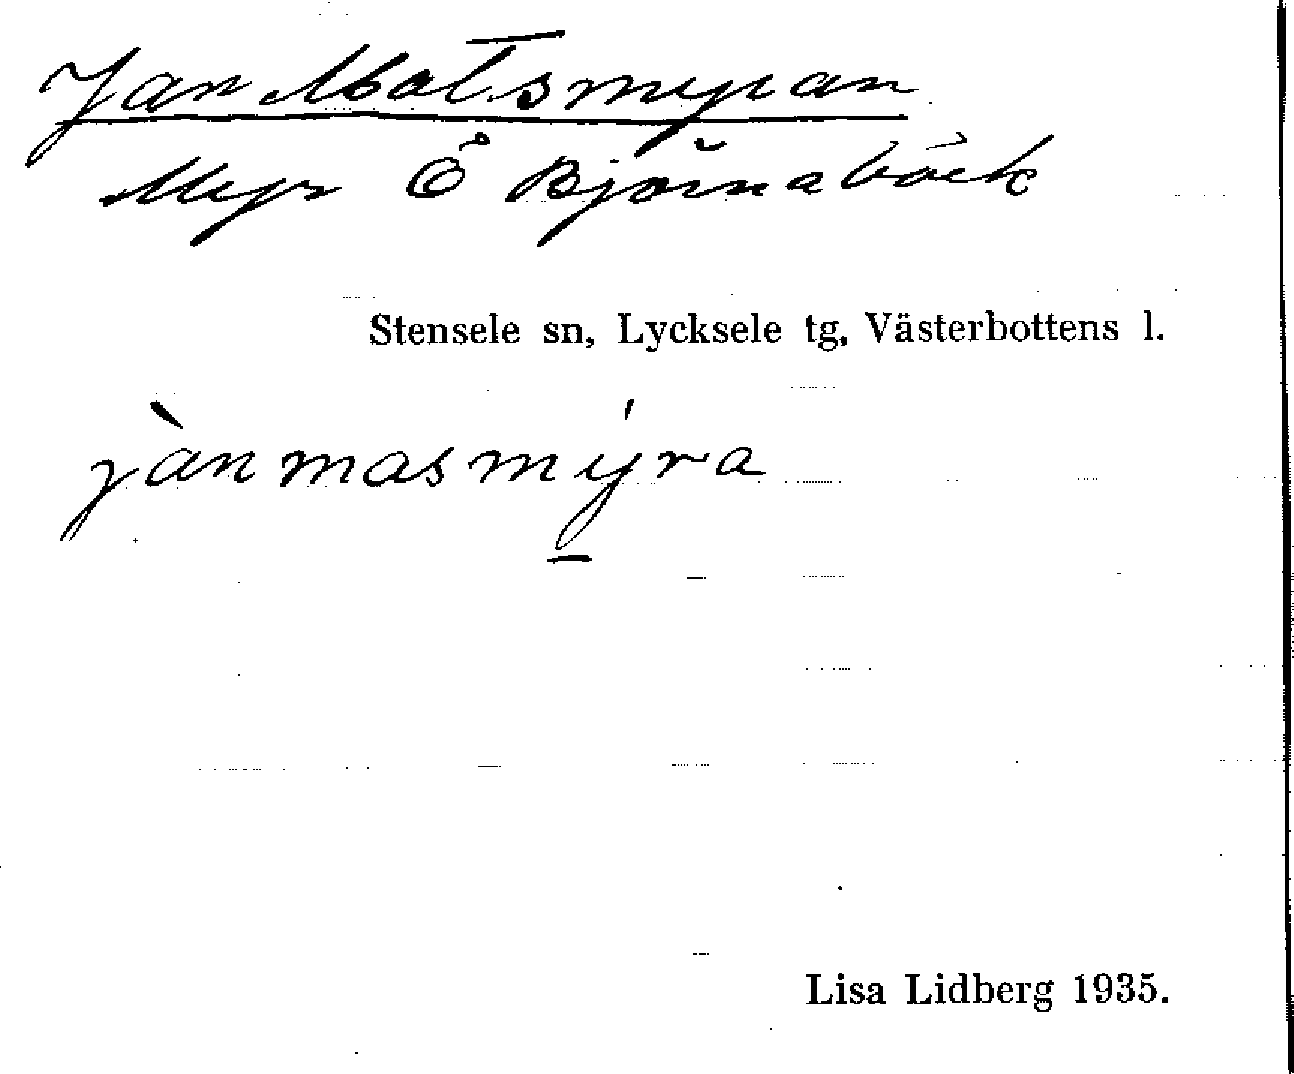 Jan Matsmyran
Myr Ö Björnabäck
Stensele sn, Lycksele tg, Västerbottens l.
jànmasmýra
Lisa Lidberg 1935.